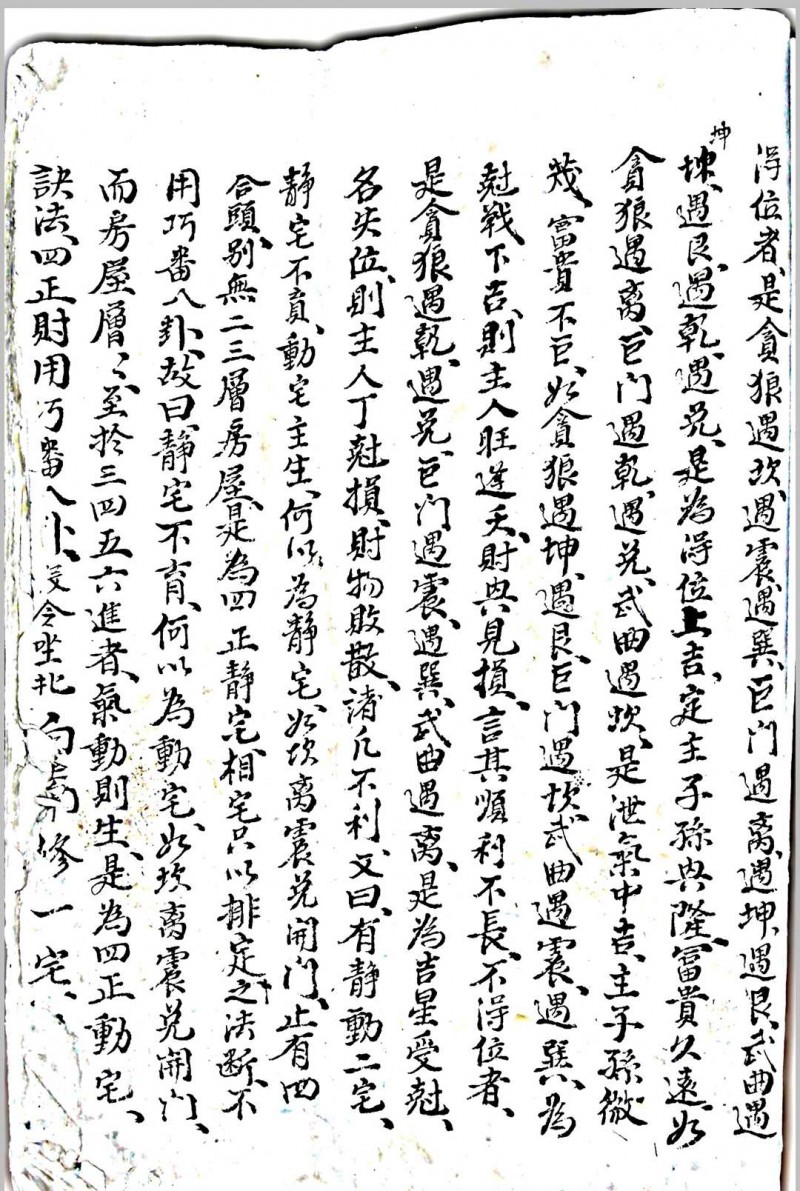 得位者、是貪狼遇坎、遇震、遇巽、巨門遇离、遇坤、遇艮、武曲遇
坤
坤、遇艮、遇乾、遇兌、是為得位上吉、定主子孫興隆、富貴久遠、如
貪狼遇离、巨門遇乾、遇兌、武曲遇坎、是泄氣中吉、主子孫微
茂、富貴不巨、如貪狼遇坤、遇艮、巨門遇坎、武曲遇震、遇巽、為
尅戰下吉、則主人旺逢夭、財興見損、言其順利不長、不得位者、
是貪狼遇乾、遇兌、巨門遇震、遇巽、武曲遇离、是為吉星受尅、
名失位、則主人丁尅損、財物敗散、諸凡不利、又曰、有静動二宅、
静宅不育、動宅主生、何以為静宅、如坎离震兌開門、止有四
合頭、别無二三層房屋、是為四正静宅、相宅只以排定之法断、不
用巧番八卦、故曰静宅不育、何以為動宅、如坎离震兌開門、
而房屋層々、至於三四五六進者、氣動則生、是為四正動宅、
訣法、四正財用巧番八卦、令坐北向 修一宅、